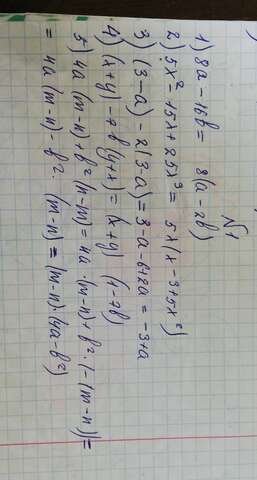 N1
1) 8a - 16b = 8(a - 2b)
2) 5x² - 15x + 25x³ = 5x(x - 3 + 5x²)
3) (3-a) - 2(3-a) = 3-a-6+2a = -3+a
4) (x+y) - 7b(y+x) = (x+y) (1-7b)
5) 4a(m-n) + b²(n-m) = 4a·(m-n) + b²·(-(m-n)) =
= 4a(m-n) - b²·(m-n) = (m-n)·(4a-b²)